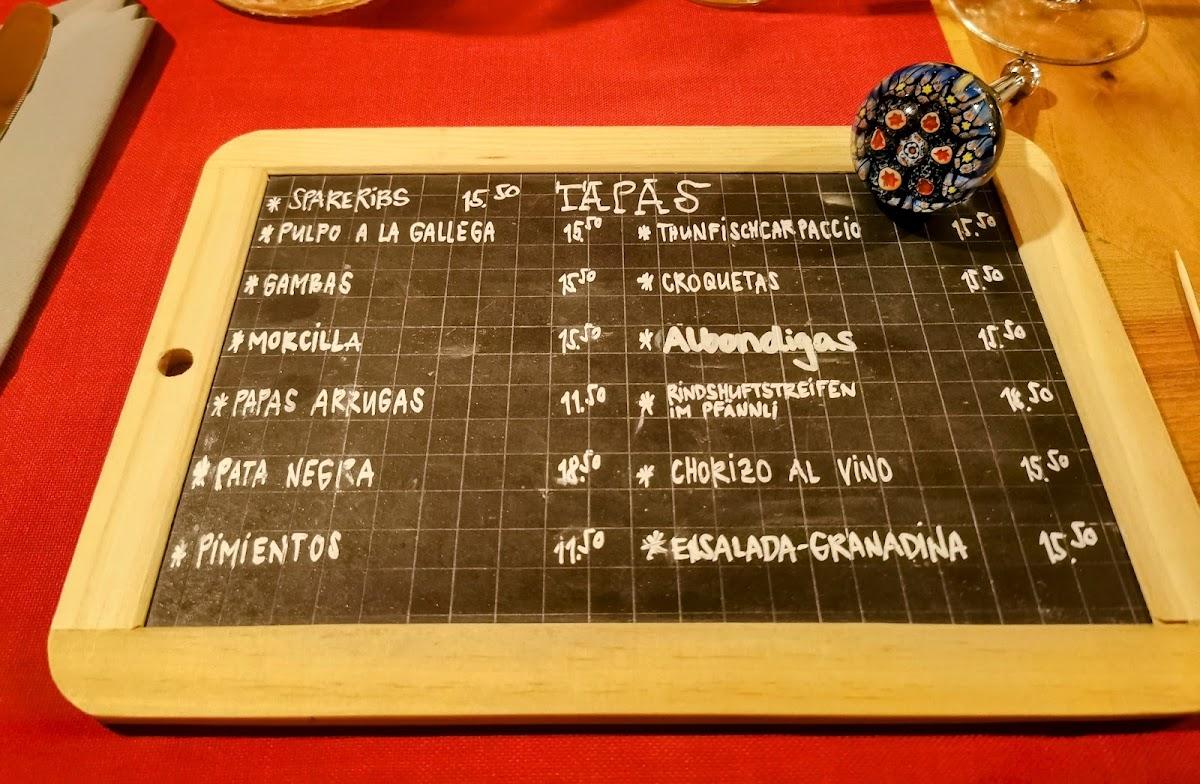 * SPARERIBS 15.50
TAPAS
* PULPO A LA GALLEGA 15.50
* GAMBAS 15.50
* MORCILLA 15.50
* PAPAS ARRUGAS 11.50
* PATA NEGRA 18.50
* PIMIENTOS 11.50
* THUNFISCHCARPACCIO 15.50
* CROQUETAS 15.50
* Albondigas 15.50
* RINDSHUFTSTREIFEN
IM PFÄNNLI
* CHORIZO AL VINO 15.50
* ENSALADA-GRANADINA 15.50